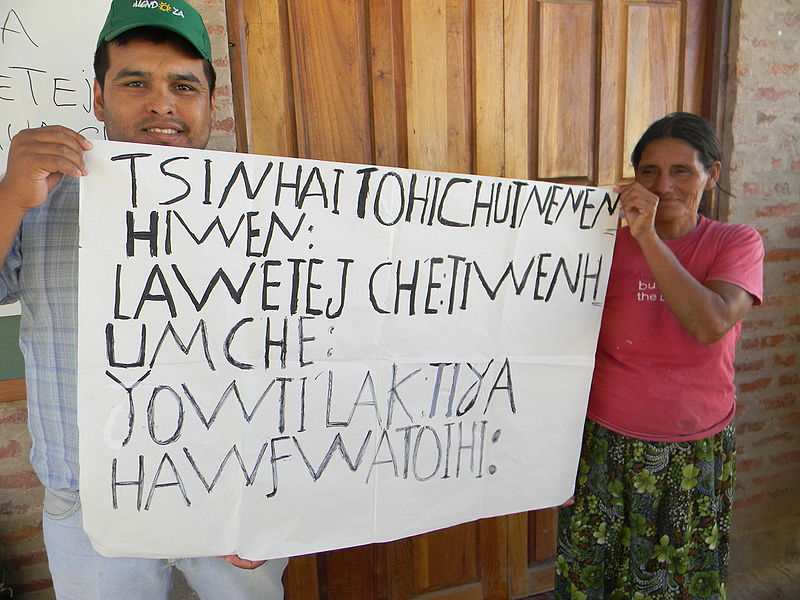 MENDOZA
A
ETEJ
TSINHAI TOHICHUTNENEN
HIWEN:
LAWETEJ CHE:TIWENH
UMCHE:
YOWTI LAK:TIYA
HAWFWATOIHI:
bu
the